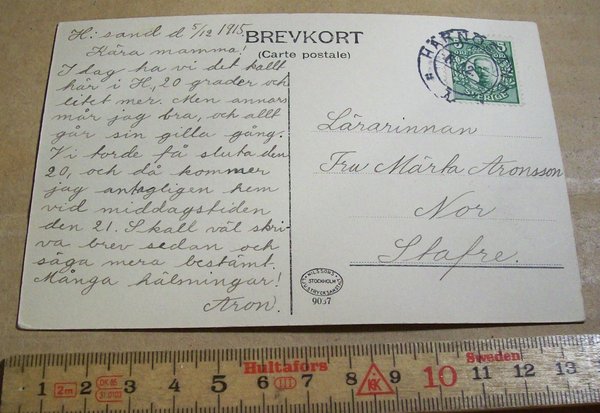 H:sand d 5/12 1915.
Kära mamma!
I dag ha vi det kallt
här i H, 20 grader och
litet mer. Men annars
mår jag bra, och allt
går sin gilla gång.
Vi torde få sluta den
20, och då kommer
jag antagligen hem
vid middagstiden
den 21. Skall väl skri-
va brev sedan och
säga mera bestämt.
Många hälsningar!
Aron.
BREVKORT
(Carte postale)
HÄRNÖ
5
Lärarinnan
Fru Märta Aronsson
Nor
Stafre.
NILSSONS
STOCKHOLM
9037
Hultafors
Sweden
1 2m 2 DK 85 3 4 5 6 7 8 9 10 11 12 13
31.0103
III
KK